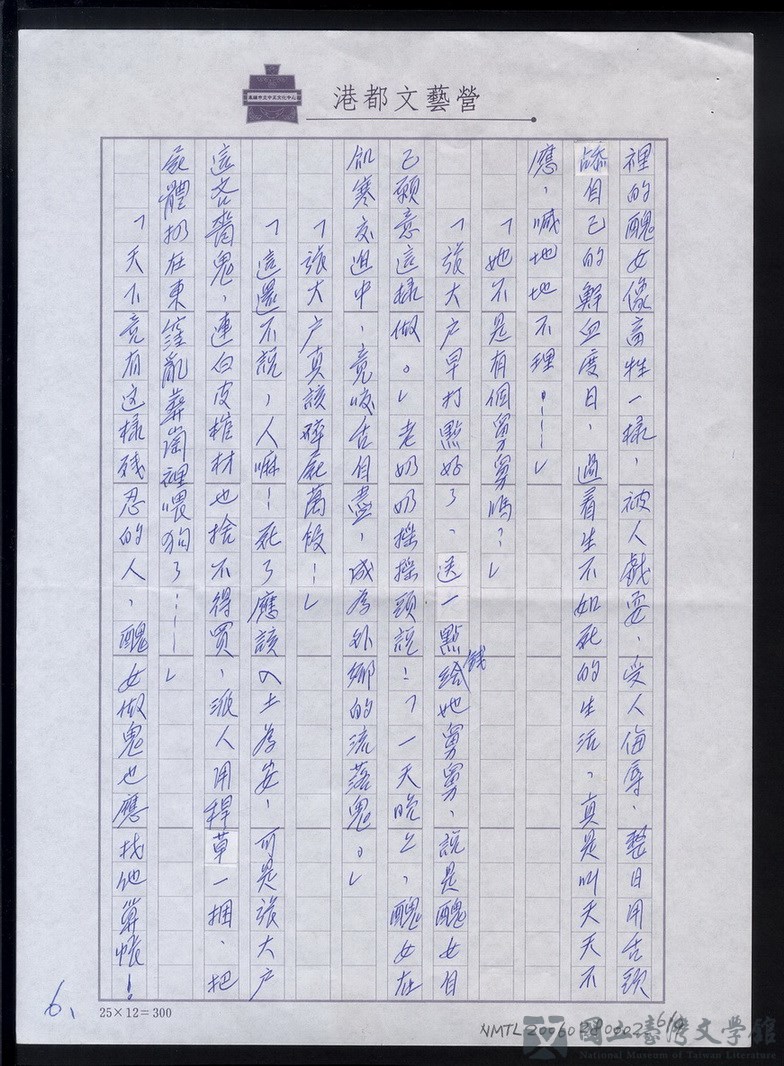 高雄市立中正文化中心
港都文藝營
裡的醜女像畜牲一樣，被人戲耍、受人侮辱、整日用舌頭
舔自己的鮮血度日，過着生不如死的生活，真是叫天天不
應，喊地地不理……」
「她不是有個舅舅嗎？」
「張大户早打點好了，送一點錢給她舅舅，說是醜女自
己願意這樣做。」老奶奶搖搖頭說！「一天晚上，醜女在
飢寒交迫中，竟咬舌自盡，成為外鄉的流落鬼。」
「張大户真該碎屍萬段！」
「這還不說，人嘛！死了應該入土為安，可是張大户
這吝嗇鬼，連白皮棺材也捨不得買，派人用稈草一捆，把
屍體扔在東窪亂葬崗裡喂狗了……」
「天下竟有这樣殘忍的人，醜女做鬼也應找他算帳！
6、
25×12=300
NMTL20060280002
國立臺灣文學館
National Museum of Taiwan Literature